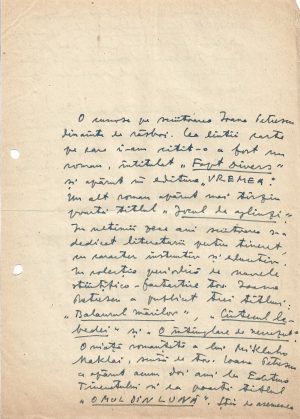 O cunosc pe scriitoarea Ioana Petrescu
dinainte de război. Cea dintîi carte
pe care i-am citit-o a fost un
roman, intitulat „Fapt divers"
și apărut în editura „VREMEA".
Un alt roman apărut mai tîrziu
poartă titlul „Jocul de oglinzi".
În ultimii zece ani scriitoarea s-a
dedicat literaturii pentru tineret
cu caracter instructiv și educativ.
În colecția periodică de nuvele
științifico-fantastice tov. Ioana
Petrescu a publicat trei titluri:
„Balaurul mărilor", „Cîntecul le-
bedei" și „O întîmplare de
O viață romanțată a lui Mikluho
Maklai, scrisă de tov. Ioana Petrescu
a apărut acum doi ani la Editura
Tineretului și ea poartă titlul
„OMUL DIN LUNĂ". Știu de asemenea